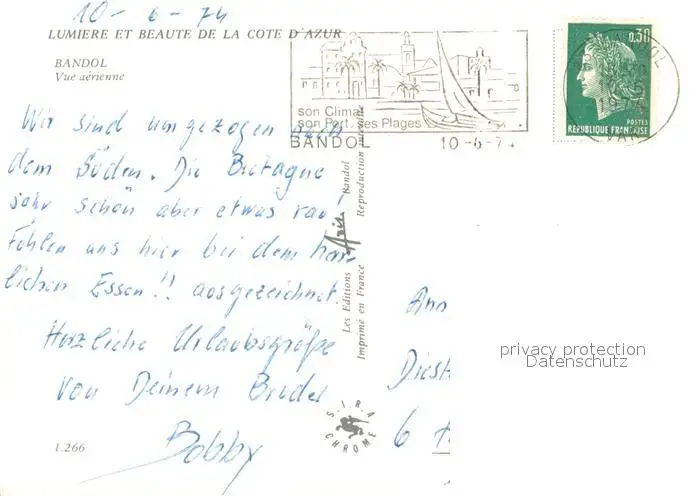 10-6-74
LUMIERE ET BEAUTE DE LA COTE D'AZUR
BANDOL
Vue aérienne
Wir sind umgezogen nach
dem Süden. Die Bretagne
sehr schön aber etwas rau
Fühlen uns hier bei dem herr-
lichen Essen!! ausgezeichnet.
Herzliche Urlaubsgrüße
von Deinem Bruder
Bobby
1.266
son Climat
son Port ses Plages
BANDOL 10-6-74
0,30
POSTES
REPUBLIQUE FRANÇAISE
VAR
Les Editions Bandol
Imprimé en France Reproduction interdite
SIRA
CHROME
6
privacy protection
Datenschutz